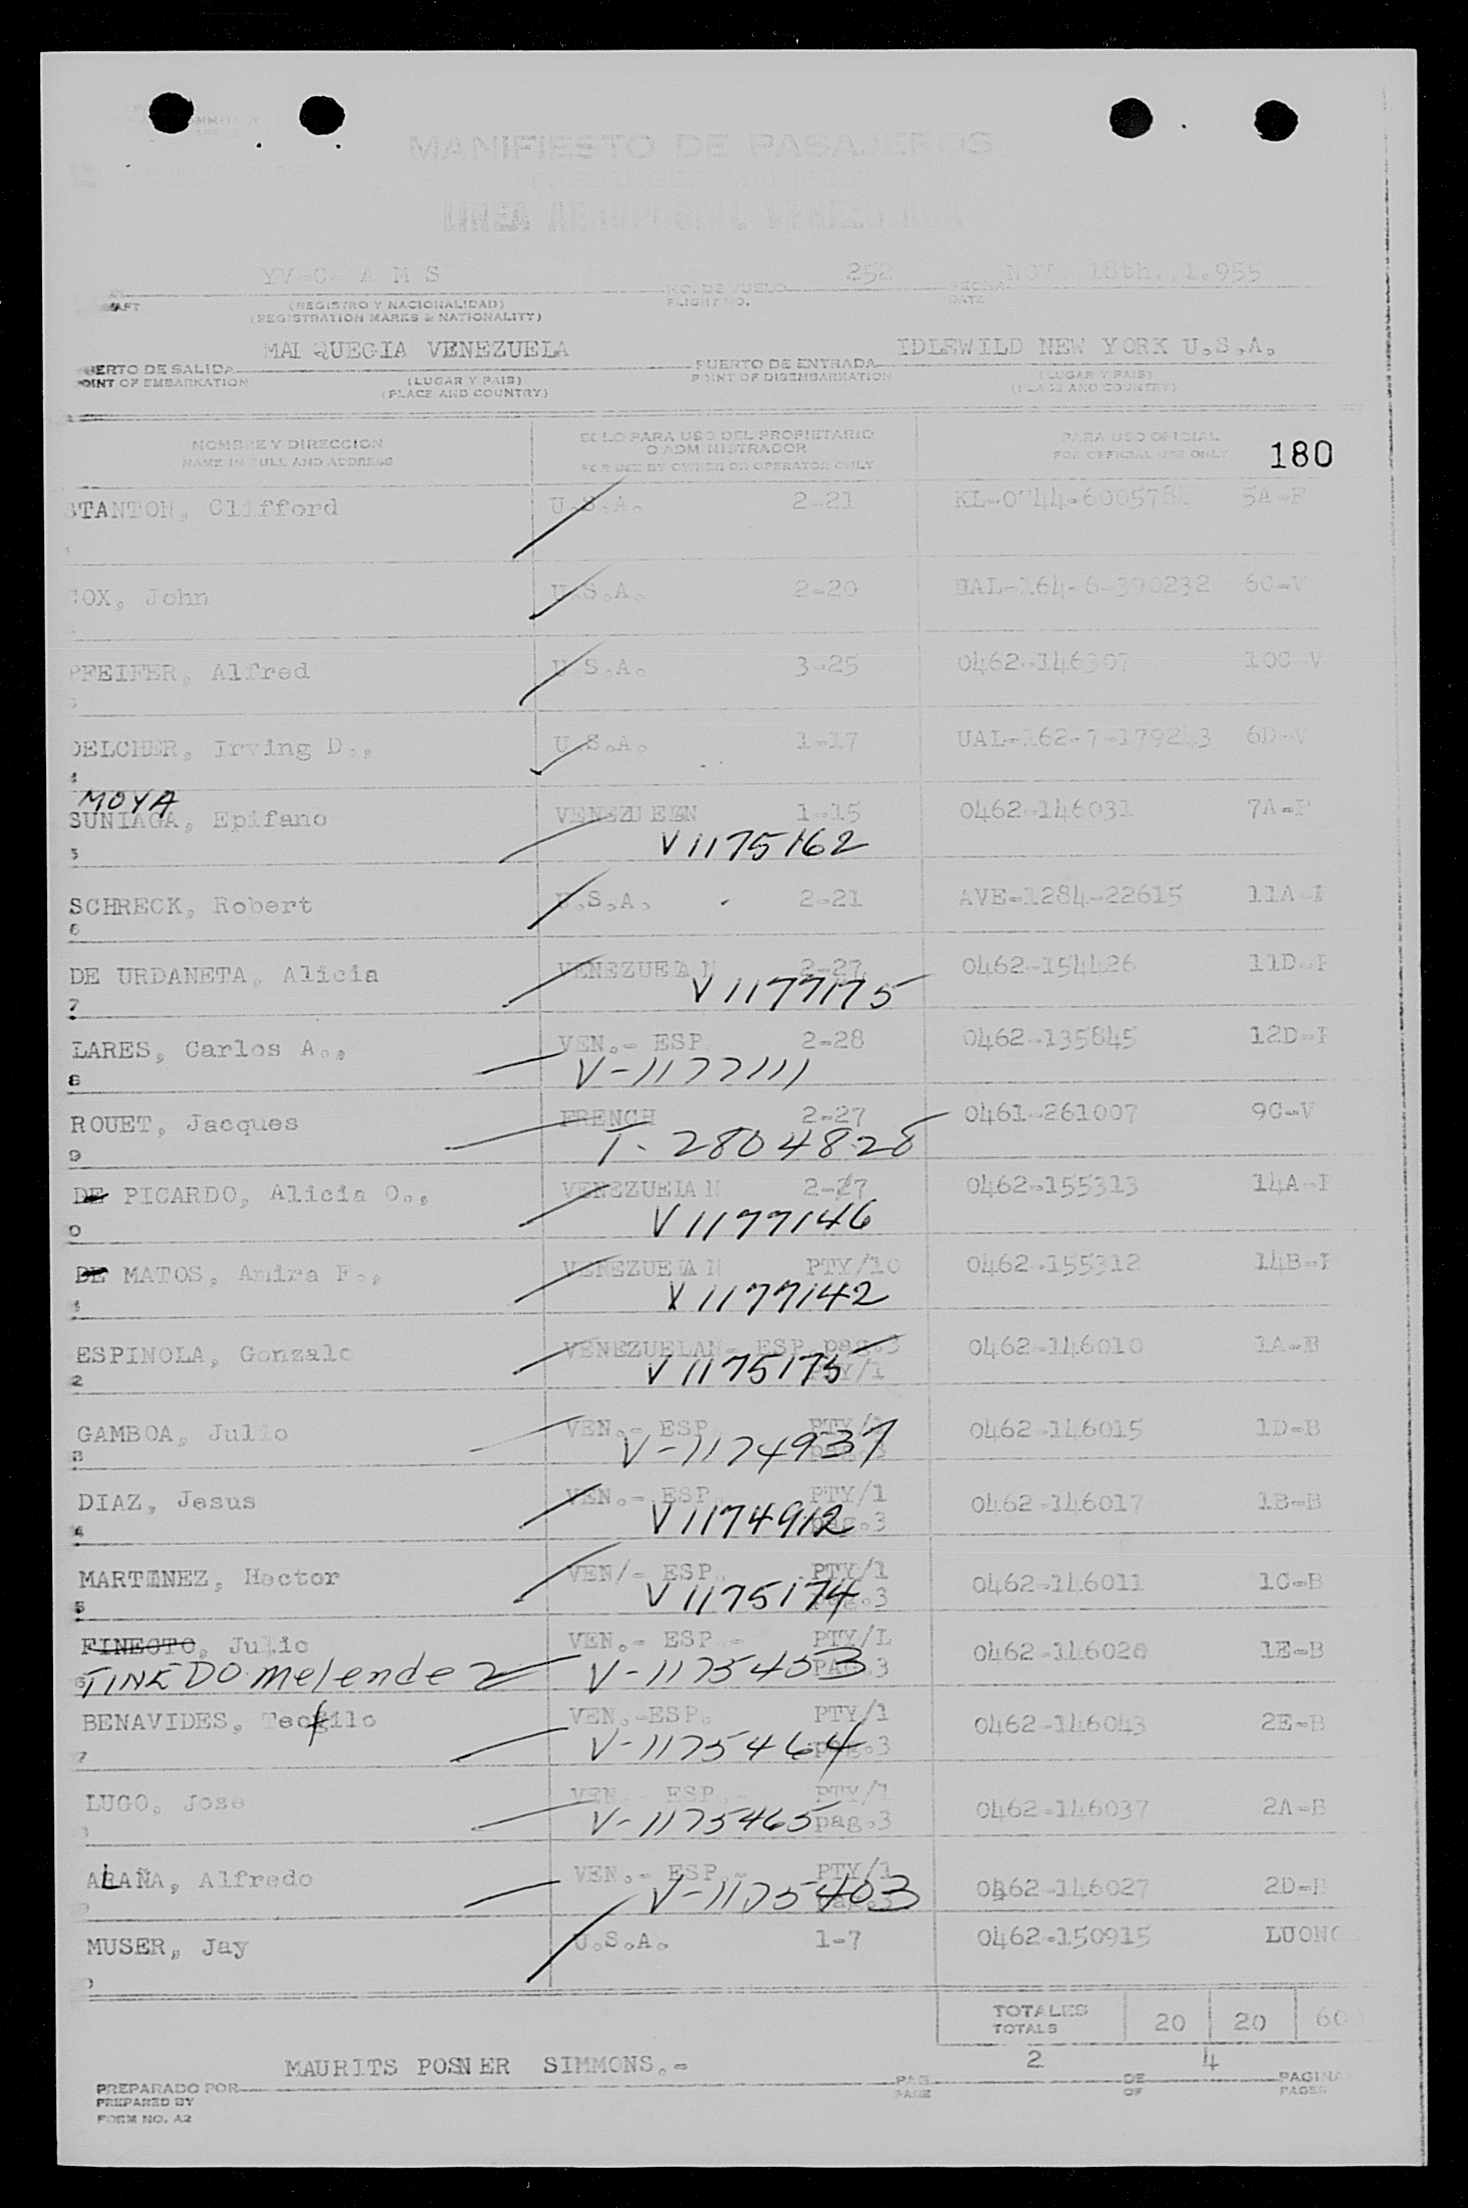 MANIFIESTO DE PASAJEROS
LINEA AEROPOSTAL VENEZOLANA
YV-C- A M S 252 NOV. 18th. 1.955
(REGISTRO Y NACIONALIDAD) NO. DE VUELO FECHA
(REGISTRATION MARKS & NATIONALITY) FLIGHT NO. DATE
VENEZUELA IDLEWILD NEW YORK U.S.A.
ERTO DE SALIDA PUERTO DE ENTRADA
OINT OF EMBARKATION (LUGAR Y PAIS) POINT OF DISEMBARKATION (LUGAR Y PAIS)
(PLACE AND COUNTRY) (PLACE AND COUNTRY)
NOMBRE Y DIRECCION SOLO PARA USO DEL PROPIETARIO PARA USO OFICIAL
NAME IN FULL AND ADDRESS O ADMINISTRADOR FOR OFFICIAL USE ONLY 180
FOR USE BY OWNER OR OPERATOR ONLY
STANTON, Clifford U.S.A. 2-21 5A-P
OX, John U.S.A. 2-20 6C-V
PFEIFER, Alfred U.S.A. 3-25 0462-146307 10C-V
DELCHER, Irving D., U.S.A. 1-17 6D-V
4
MOYA
SUNIAGA, Epifano VENEZUEEN 1-15 0462-146031 7A-P
5 V1175162
SCHRECK, Robert U.S.A. 2-21 AVE-1284-22615 11A-
6
DE URDANETA, Alicia VENEZUEAN 2-27 0462-154426 11D-
7 V1177175
LARES, Carlos A., VEN.- ESP 2-28 0462-135845 12D-
8 V-1177111
ROUET, Jacques FRENCH 2-27 0461-261007 9C-V
9 T-2804828
DE PICARDO, Alicia O., VENEZUEIAN 2-27 0462-155313 14A-
0 V1177146
DE MATOS, Amira F., VENEZUEAN PTY/10 0462-155312 14B-
1 V1177142
ESPINOLA, Gonzalo VENEZUELAN- ESP pag.3 0462-146010 1A-B
2 V1175175 PTY/1
GAMBOA, Julio VEN.- ESP 0462-146015 1D-B
3 V-1174937 pag.3
DIAZ, Jesus VEN.- ESP PTY/1 0462-146017 1B-B
4 V1174912 pag.3
MARTINEZ, Hector VEN/- ESP PTY/1 0462-146011 1C-B
5 V1175174 pag.3
FINEOTO, Julio VEN.- ESP - PTY/L 0462-146020 1E-B
6 TINEDO Melendez V-1175453 PAG.3
BENAVIDES, Teofilo VEN.-ESP. PTY/1 0462-146043 2E-B
7 V-1175464 pag.3
LUGO, Jose VEN ESP - PTY/1 0462-146037 2A-B
V-1175465 pag.3
ALAÑA, Alfredo VEN.- ESP.- PTY/1 0462-146027 2D-
V-1175403
MUSER, Jay U.S.A. 1-7 0462-150915
TOTALES
TOTALS 20 20 60
MAURITS POSNER SIMMONS.- 2 4
PREPARADO POR PAG. DE PAGINA
PREPARED BY PAGE OF PAGES
FORM NO. A2